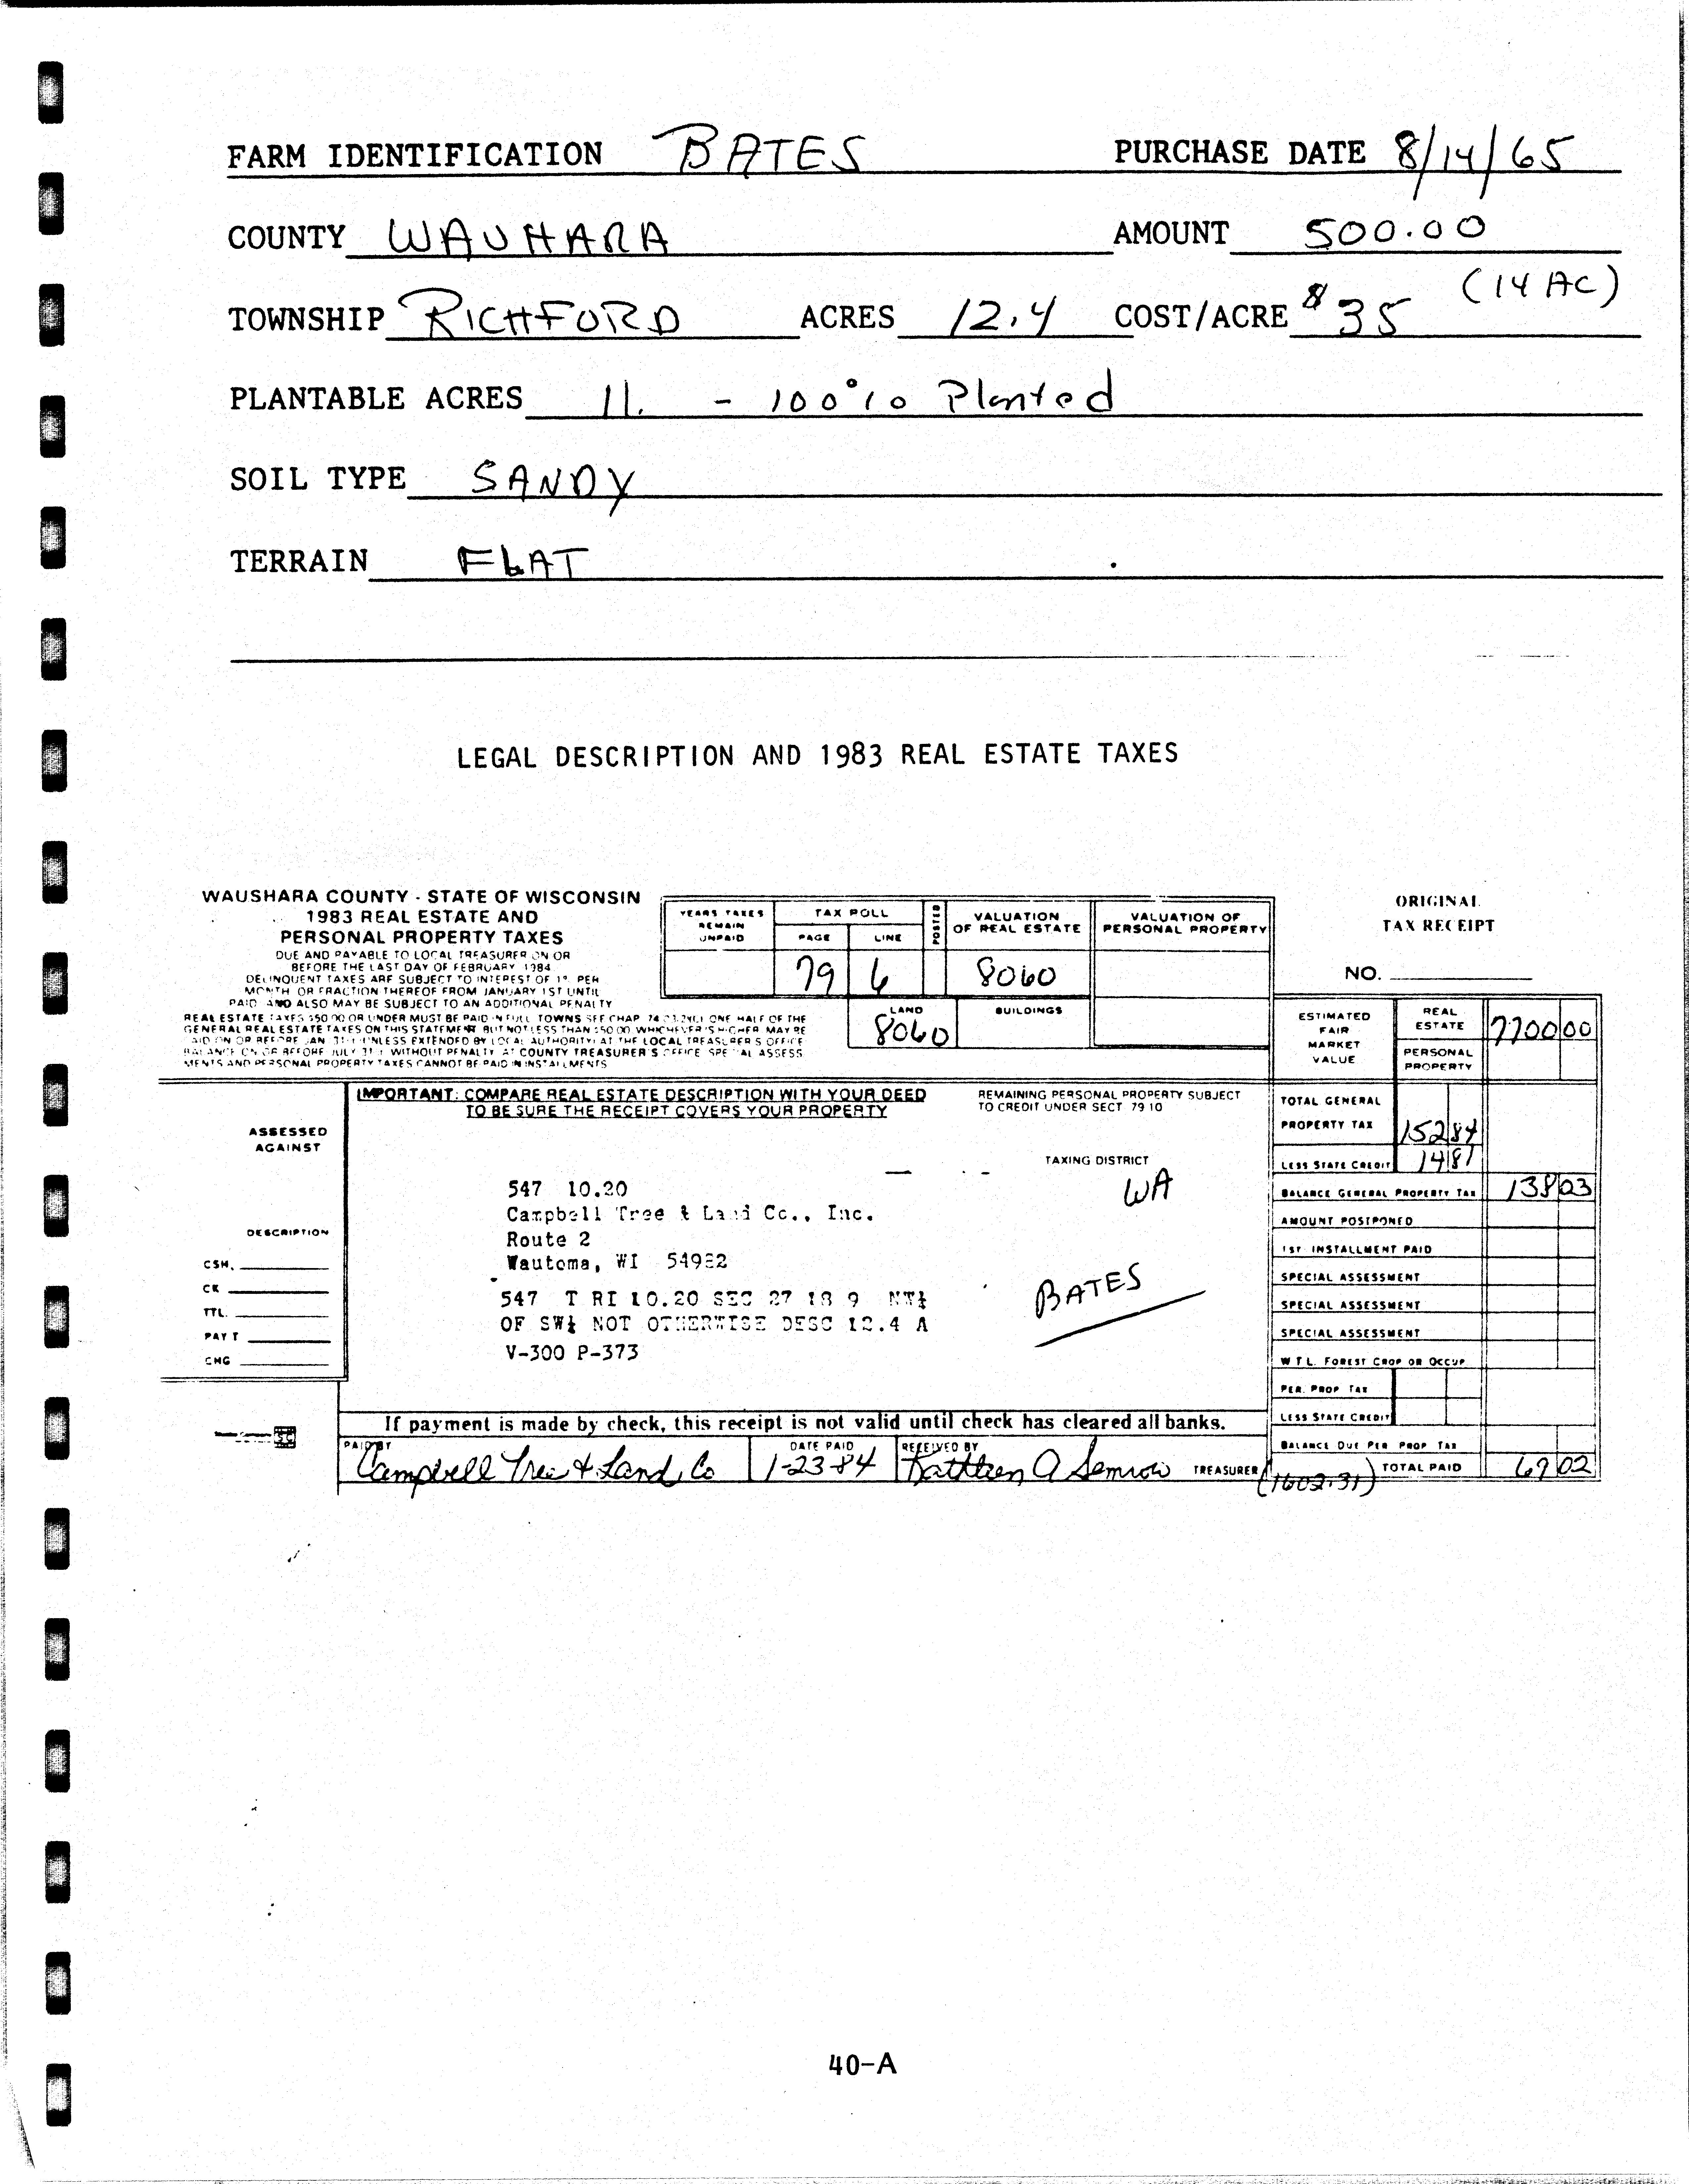 FARM IDENTIFICATION BATES PURCHASE DATE 8/14/65
COUNTY WAUHARA AMOUNT 500.00
TOWNSHIP RICHFORD ACRES 12.4 COST/ACRE $35 (14 AC)
PLANTABLE ACRES 11. - 100% Planted
SOIL TYPE SANDY
TERRAIN FLAT
LEGAL DESCRIPTION AND 1983 REAL ESTATE TAXES
WAUSHARA COUNTY - STATE OF WISCONSIN
1983 REAL ESTATE AND
PERSONAL PROPERTY TAXES
DUE AND PAYABLE TO LOCAL TREASURER ON OR
BEFORE THE LAST DAY OF FEBRUARY 1984
DELINQUENT TAXES ARE SUBJECT TO INTEREST OF 1% PER
MONTH OR FRACTION THEREOF FROM JANUARY 1ST UNTIL
PAID AND ALSO MAY BE SUBJECT TO AN ADDITIONAL PENALTY
REAL ESTATE TAXES $50.00 OR UNDER MUST BE PAID IN FULL TOWNS SEE CHAP 74 ONE HALF OF THE
GENERAL REAL ESTATE TAXES ON THIS STATEMENT BUT NOT LESS THAN $50.00 WHICHEVER IS HIGHER MAY BE
PAID ON OR BEFORE JAN 31 UNLESS EXTENDED BY LOCAL AUTHORITY AT THE LOCAL TREASURER'S OFFICE
BALANCE ON OR BEFORE JULY 31 WITHOUT PENALTY AT COUNTY TREASURER'S OFFICE SPECIAL ASSESS
MENTS AND PERSONAL PROPERTY TAXES CANNOT BE PAID IN INSTALLMENTS
YEARS TAXES REMAIN UNPAID
TAX ROLL
PAGE LINE
79 6
POSTED
VALUATION OF REAL ESTATE
8060
VALUATION OF PERSONAL PROPERTY
LAND
8060
BUILDINGS
ORIGINAL
TAX RECEIPT
NO.
ESTIMATED FAIR MARKET VALUE
REAL ESTATE 7700 00
PERSONAL PROPERTY
IMPORTANT: COMPARE REAL ESTATE DESCRIPTION WITH YOUR DEED
TO BE SURE THE RECEIPT COVERS YOUR PROPERTY
REMAINING PERSONAL PROPERTY SUBJECT
TO CREDIT UNDER SECT 79 10
ASSESSED
AGAINST
TAXING DISTRICT
WA
547 10.20
Campbell Tree & Land Co., Inc.
Route 2
Wautoma, WI 54982
547 T RI 10.20 SEC 27 18 9 NW¼
OF SW¼ NOT OTHERWISE DESC 12.4 A
V-300 P-373
BATES
DESCRIPTION
CSH.
CK
TTL.
PAY T
CHG
TOTAL GENERAL
PROPERTY TAX 152 84
LESS STATE CREDIT 14 81
BALANCE GENERAL PROPERTY TAX 138 03
AMOUNT POSTPONED
1ST INSTALLMENT PAID
SPECIAL ASSESSMENT
SPECIAL ASSESSMENT
SPECIAL ASSESSMENT
W T L. FOREST CROP OR OCCUP
PER. PROP TAX
LESS STATE CREDIT
BALANCE DUE PER PROP TAX
TOTAL PAID 69 02
If payment is made by check, this receipt is not valid until check has cleared all banks.
PAID BY Campbell Tree & Land Co
DATE PAID 1-23-84
RECEIVED BY Kathleen A Semrow TREASURER
(1602.31)
40-A